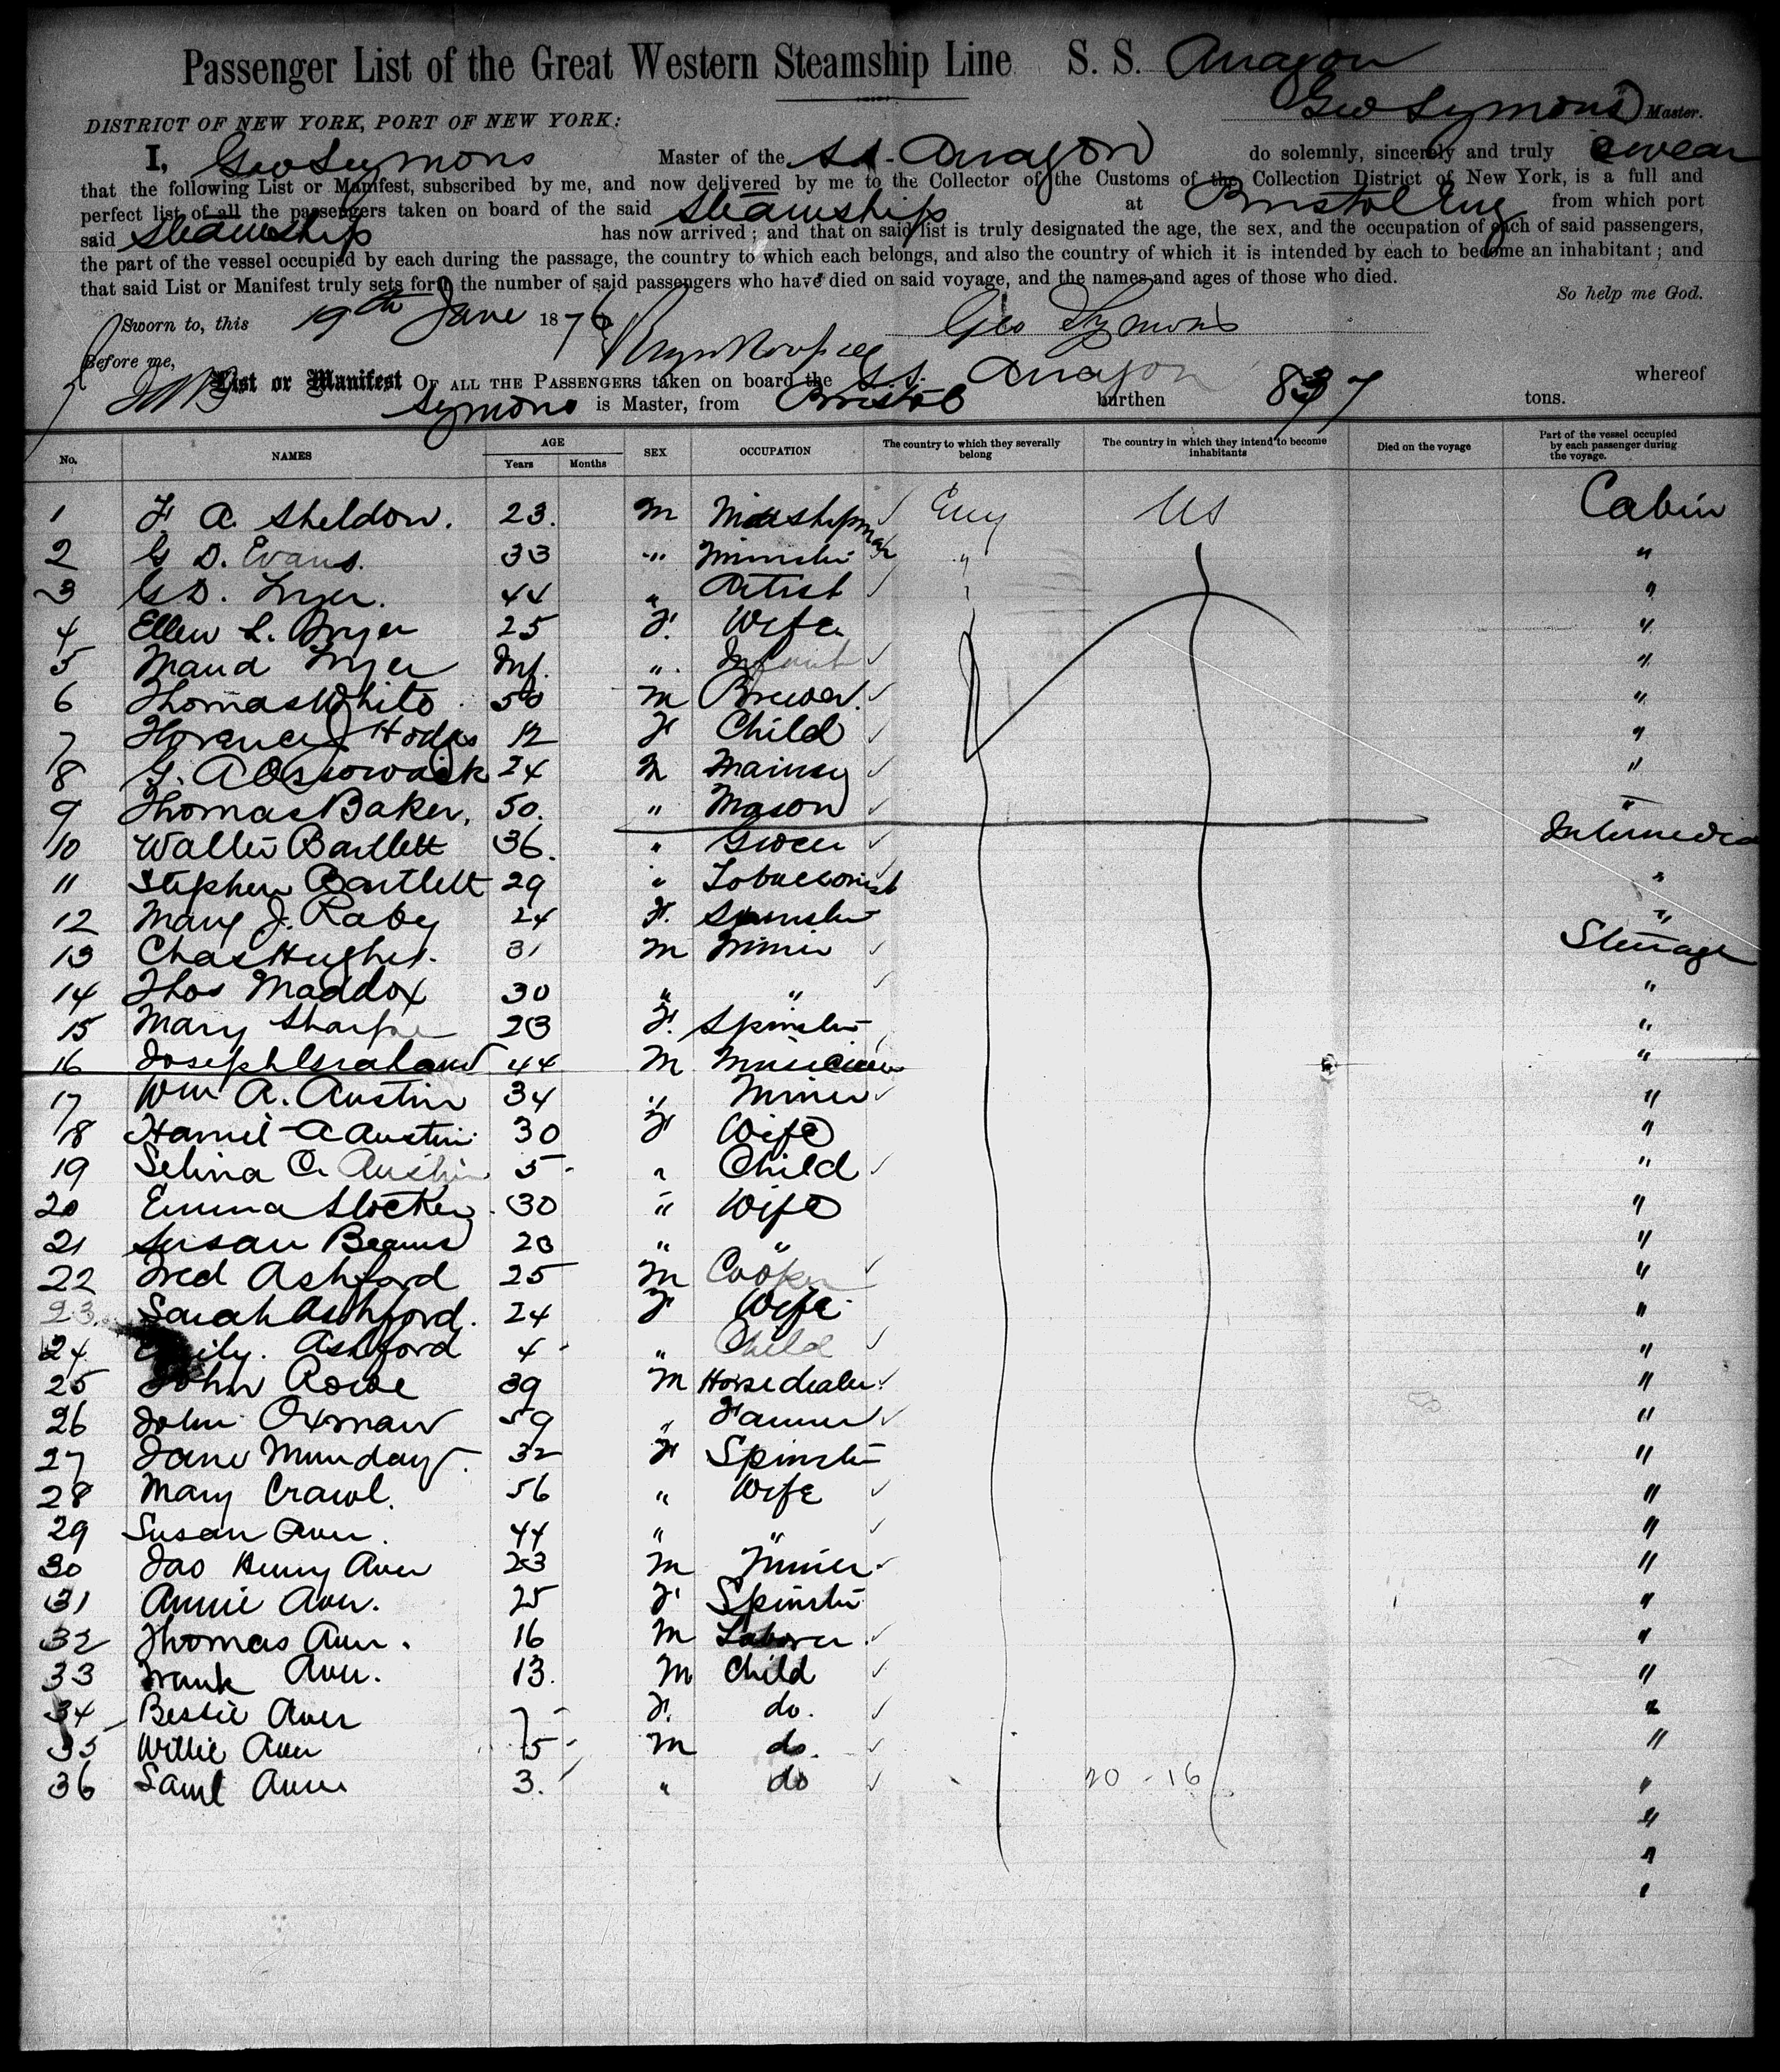 Passenger List of the Great Western Steamship Line S. S. Arragon
Geo Symons Master.
DISTRICT OF NEW YORK, PORT OF NEW YORK:
I, Geo Symons Master of the S.S. Arragon do solemnly, sincerely and truly swear
that the following List or Manifest, subscribed by me, and now delivered by me to the Collector of the Customs of the Collection District of New York, is a full and
perfect list of all the passengers taken on board of the said Steamship at Bristol Eng from which port
said Steamship has now arrived; and that on said list is truly designated the age, the sex, and the occupation of each of said passengers,
the part of the vessel occupied by each during the passage, the country to which each belongs, and also the country of which it is intended by each to become an inhabitant; and
that said List or Manifest truly sets forth the number of said passengers who have died on said voyage, and the names and ages of those who died.
So help me God.
Sworn to, this 19th June 1876 Geo Symons
Before me,
List or Manifest OF ALL THE PASSENGERS taken on board the S.S. Arragon whereof
Symons is Master, from Bristol burthen 837 tons.
No. NAMES AGE Years Months SEX OCCUPATION The country to which they severally belong The country in which they intend to become inhabitants Died on the voyage Part of the vessel occupied by each passenger during the voyage.
1 F. A. Sheldon. 23. M Midshipman Eng US Cabin
2 G D. Evans. 33 " Minister " "
3 G D. Fryer. 44 " Artist "
4 Ellen L. Fryer 25 F. Wife "
5 Maud Fryer Inf. " Infant "
6 Thomas White 50 M Brewer. "
7 Florence Hodges 12 F Child "
8 24 M "
9 Thomas Baker, 50. " Mason "
10 Walter Bartlett 36. " Grocer Intermedia
11 Stephen Bartlett 29 " Tobacconist "
12 Mary J. Raby 24 F. Spinster "
13 Chas Hughes. 31 M Miner Steerage
14 Thos Maddox 30 " " "
15 Mary Sharpe 23 F. Spinster "
16 Joseph Graham 44 M Musician "
17 Wm A. Austin 34 " Miner "
18 Harriet A Austin 30 F Wife "
19 Selina A. Austin 5 " Child "
20 Emma Slocker 30 " Wife "
21 Susan Beams 23 " " "
22 Fred Ashford 25 M Cooper "
23 Sarah Ashford. 24 F Wife "
24 Emily. Ashford 4 " Child "
25 John Rowe 39 M Horsedealer "
26 John Oxman 59 " Farmer "
27 Jane Munday. 32 F Spinster "
28 Mary Crawl. 56 " Wife "
29 Susan Aver. 44 " " "
30 Jas Henry Aver 23 M Miner "
31 Annie Aver. 25 F Spinster "
32 Thomas Aver. 16 M Laborer "
33 Frank Aver. 13. M Child "
34 Bessie Aver 7 F. do. "
35 Willie Aver 5 M do. "
36 Saml Aver 3. " do "
20 - 16
"
"
"